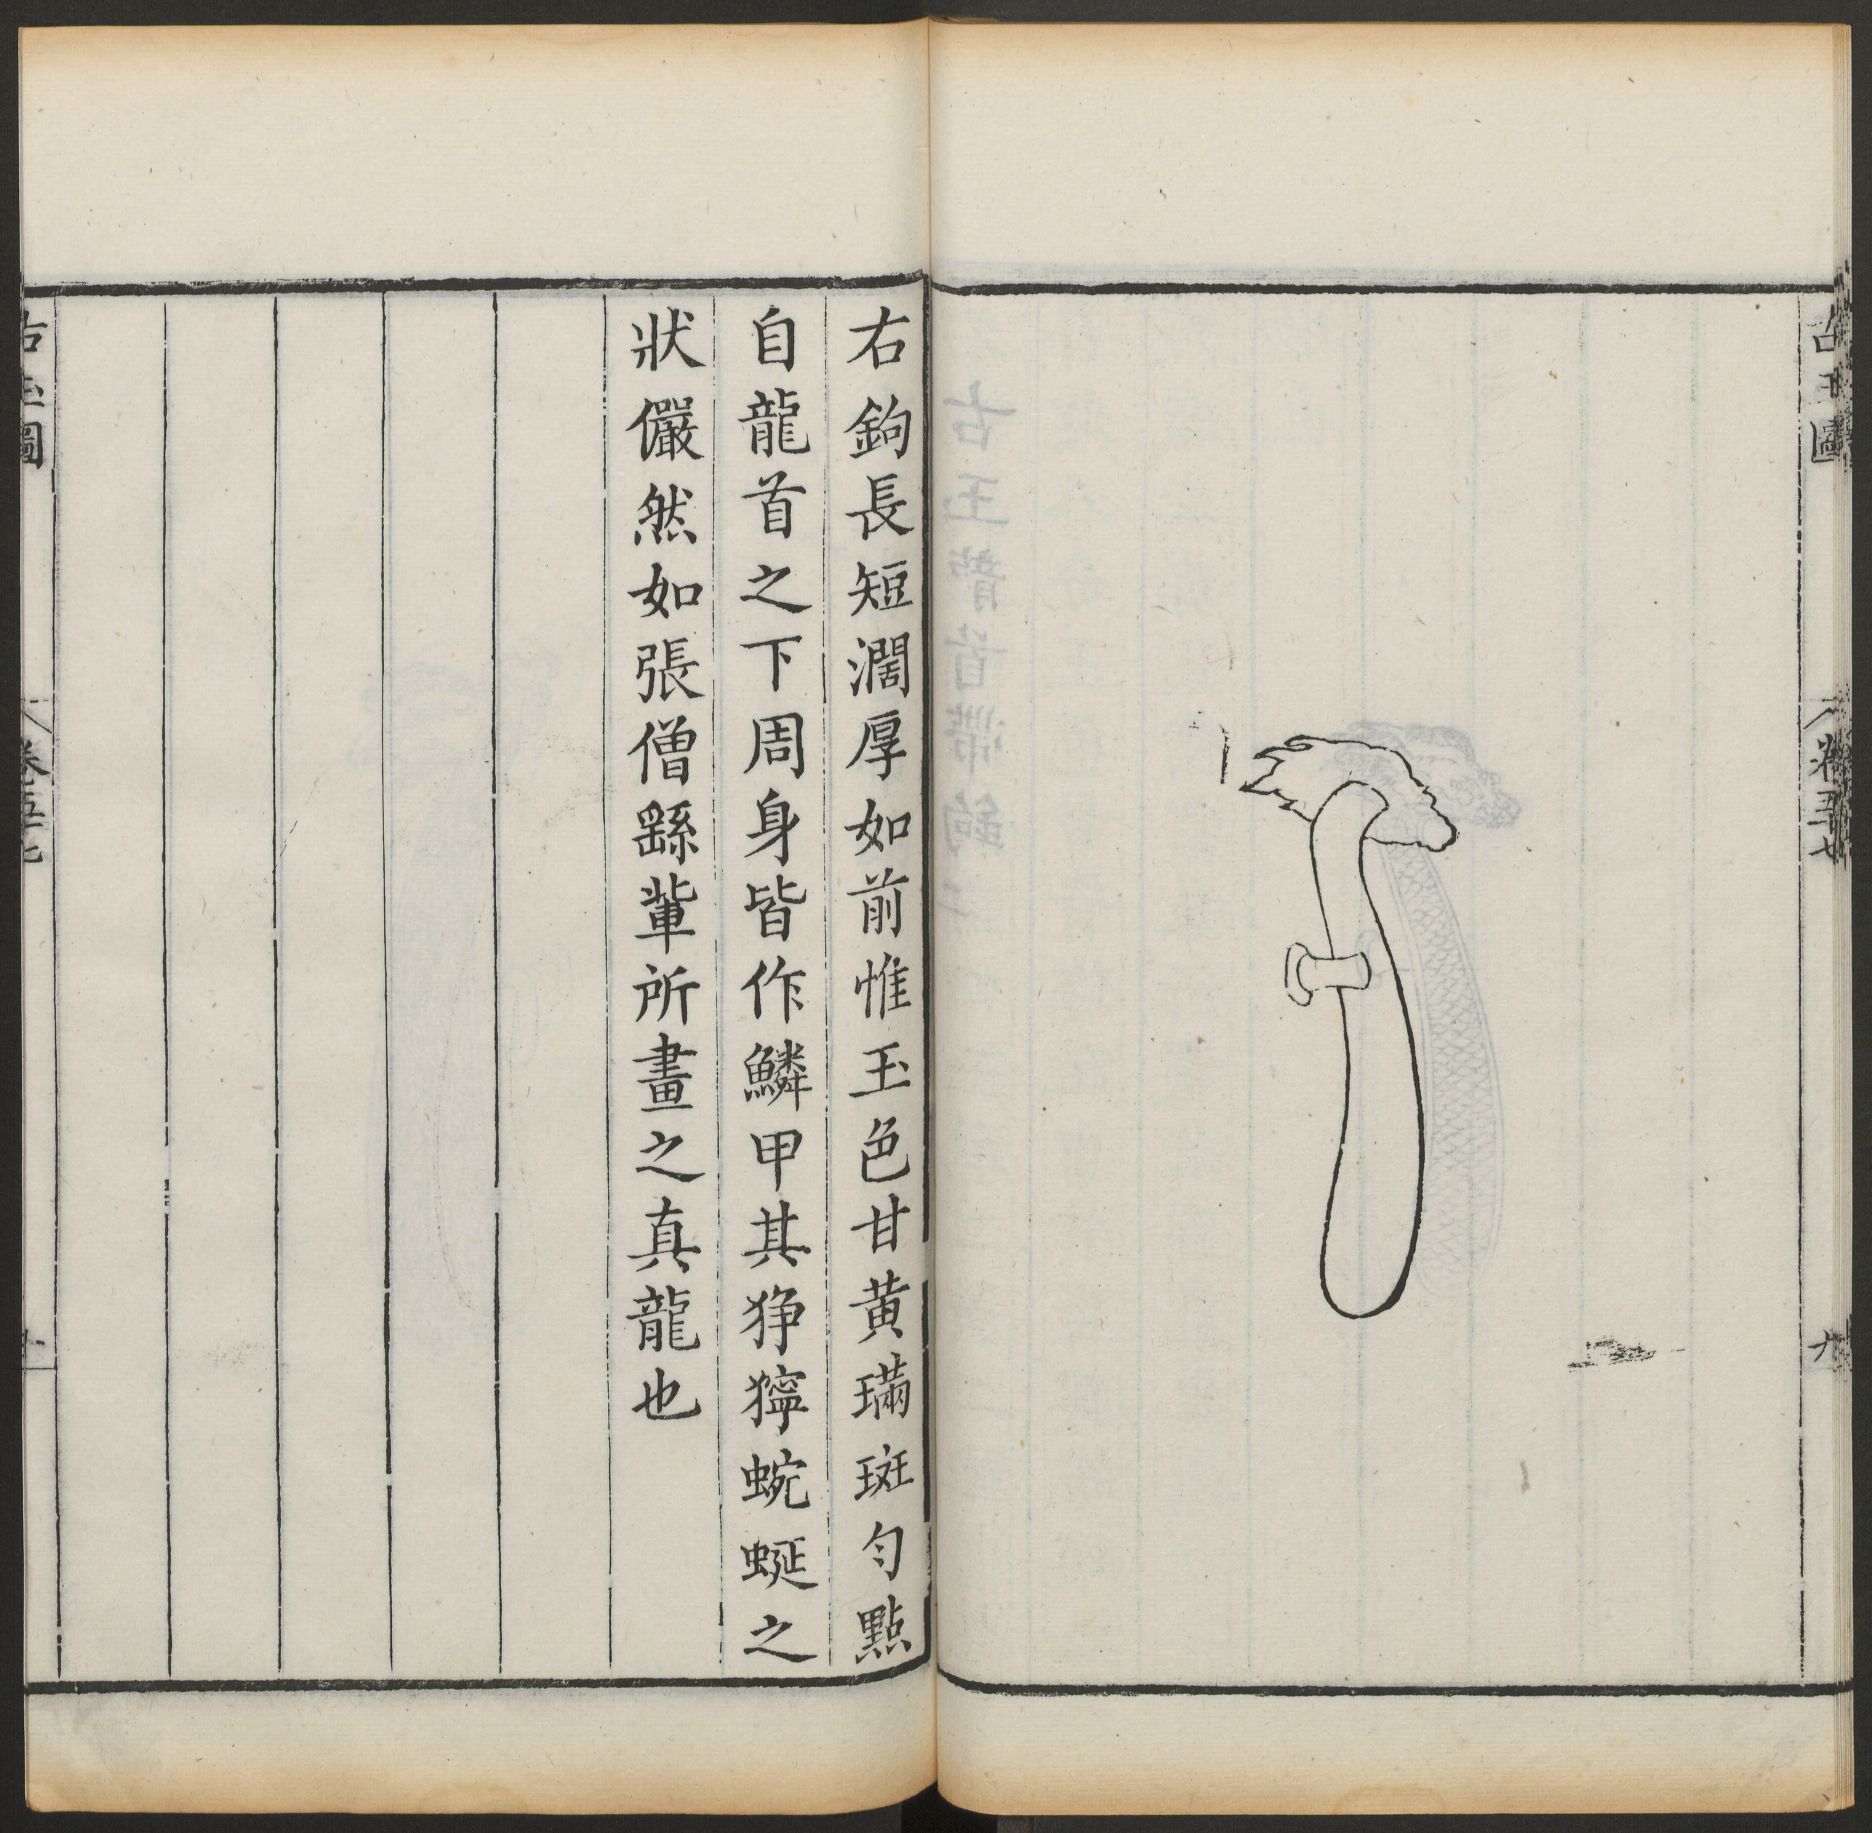 古玉圖
卷五七
九
右鉤長短濶厚如前惟玉色甘黄璊斑勻點
自龍首之下周身皆作鱗甲其猙獰蜿蜒之
狀儼然如張僧繇輩所畫之真龍也
古玉圖
卷五七